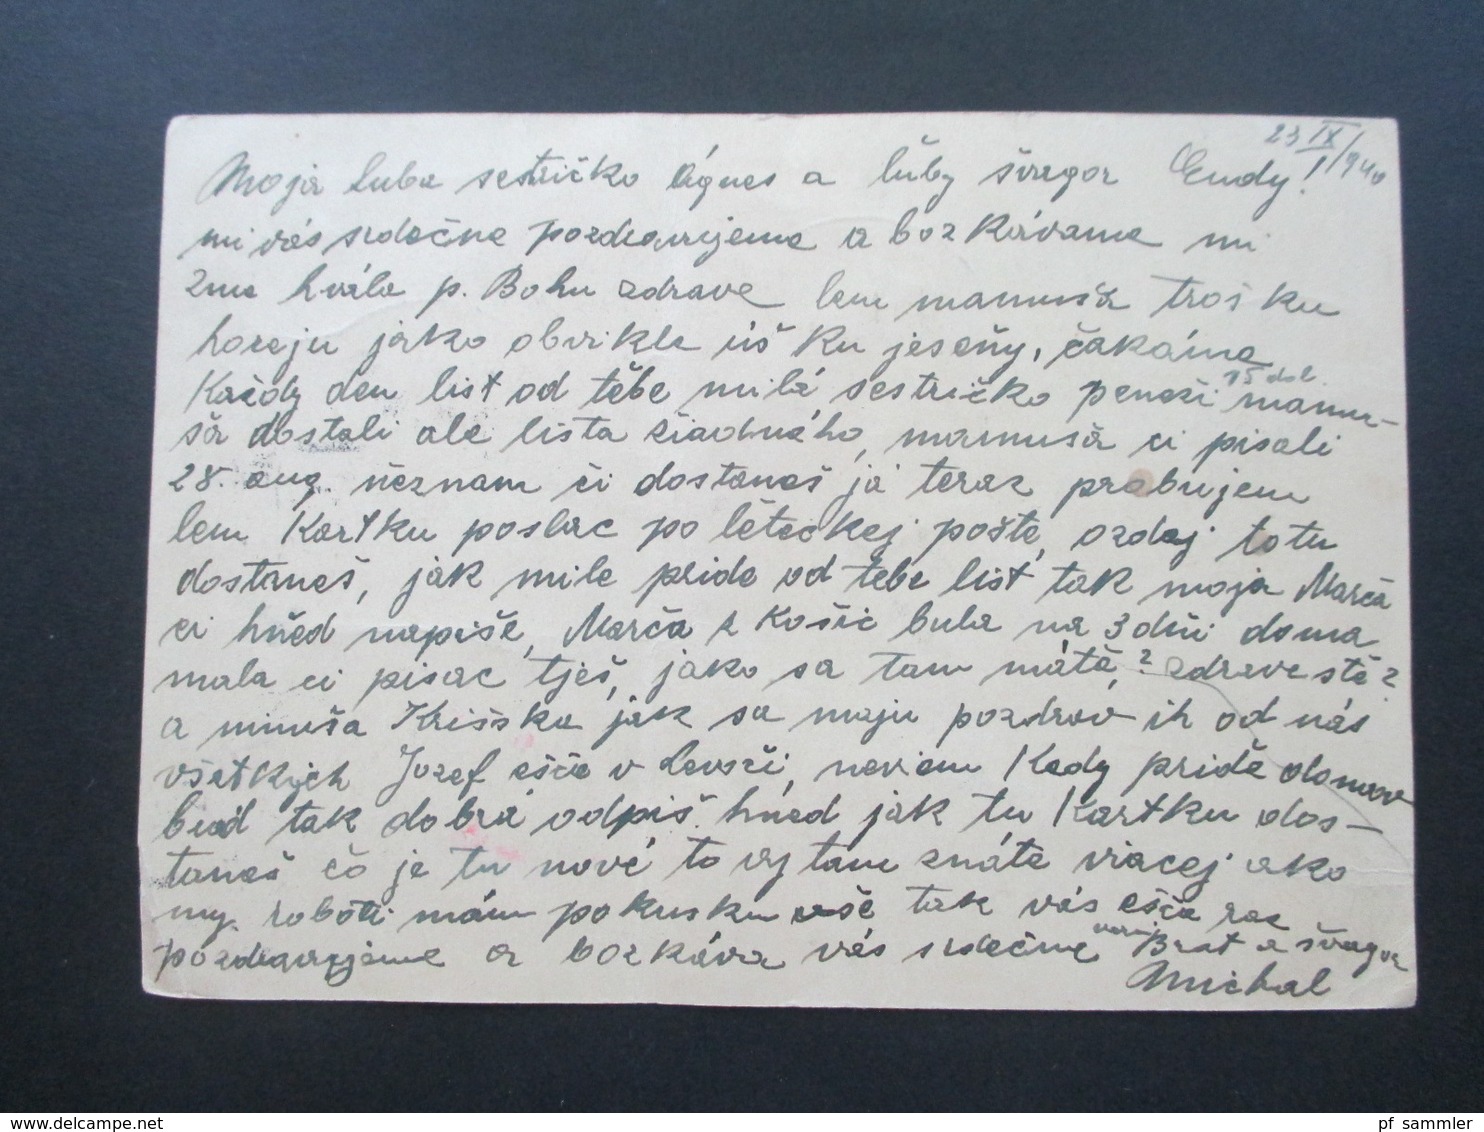 23 IX/1940
Moja luba sestričko Ágnes a lúby švagor Endy!
mi vás srdečne pozdravujeme a bozkávame mi
zme hvála p. Bohu zdrave lem mamuša troš ku
horeju jako obvikle úš ku jeseňy, čakáme
Každy den list od těbe milá sestričko penezi 15 dol. mamu-
ša dostali ale lista žiadného, mamuša ci pisali
28. aug. ňeznam či dostaneš ja teraz probujem
lem Kartku poslac po lěteckej pošte, ozdaj totu
dostaneš, jak mile pride od tebe list tak moja Marča
ci hňed napiše, Marča z Košic bula na 3 dňi doma
mala ci pisac tješ, jako sa tam mátě? zdrave stě?
a minuša Kriška jak sa maju pozdrav ih od nás
všetkijch Jozef ešče v Levoči, neviem Kedy pridě domov
buď tak dobrá odpiš hňed jak tu Kartku dos-
taneš čo je tu nové to aj tam znáte viacej ako
my. roboti mám pokusku eše tak vás ešče raz
pozdravujeme a bozkáva vás srdečne Brat a švagor
Michal
delcampe.net
pf_sammler